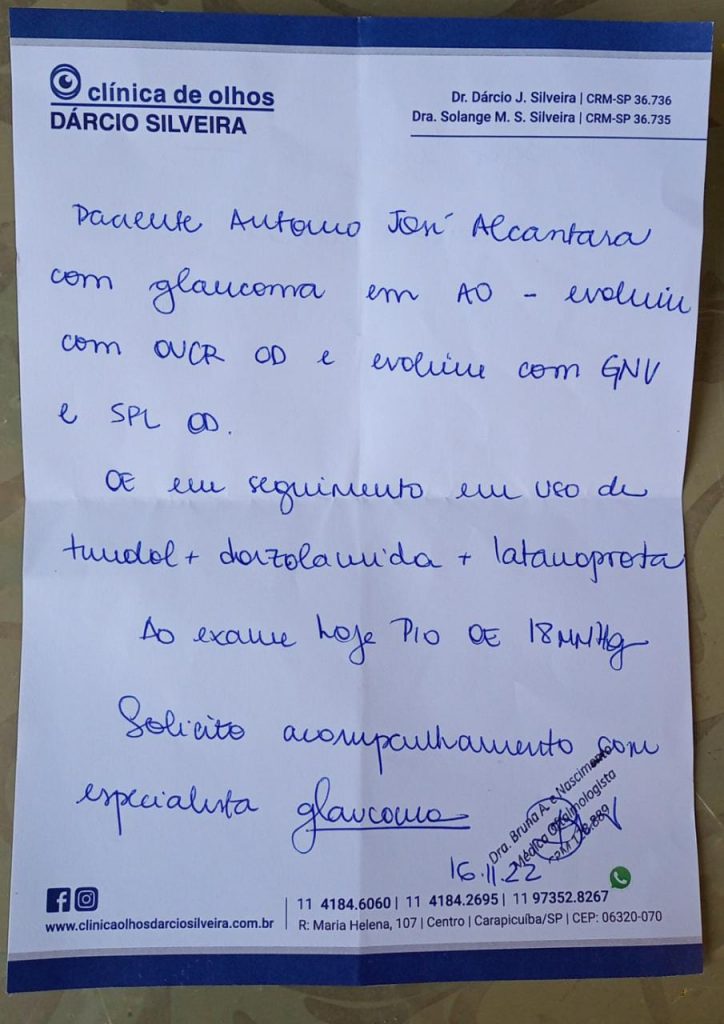 clínica de olhos
DÁRCIO SILVEIRA
Dr. Dárcio J. Silveira | CRM-SP 36.736
Dra. Solange M. S. Silveira | CRM-SP 36.735
Paciente Antonio José Alcantara
com glaucoma em AO - evoluiu
com OVCR OD e evoluiu com GNV
e SPL OD.
OE em seguimento em uso de
timolol + dorzolamida + latanoprosta
Ao exame hoje PIO OE 18 mmHg
Solicito acompanhamento com
especialista glaucoma
Dra. Bruna A. e Nascimento
Médica Oftalmologista
16.11.22
11 4184.6060 | 11 4184.2695 | 11 97352.8267
www.clinicaolhosdarciosilveira.com.br
R: Maria Helena, 107 | Centro | Carapicuíba/SP | CEP: 06320-070